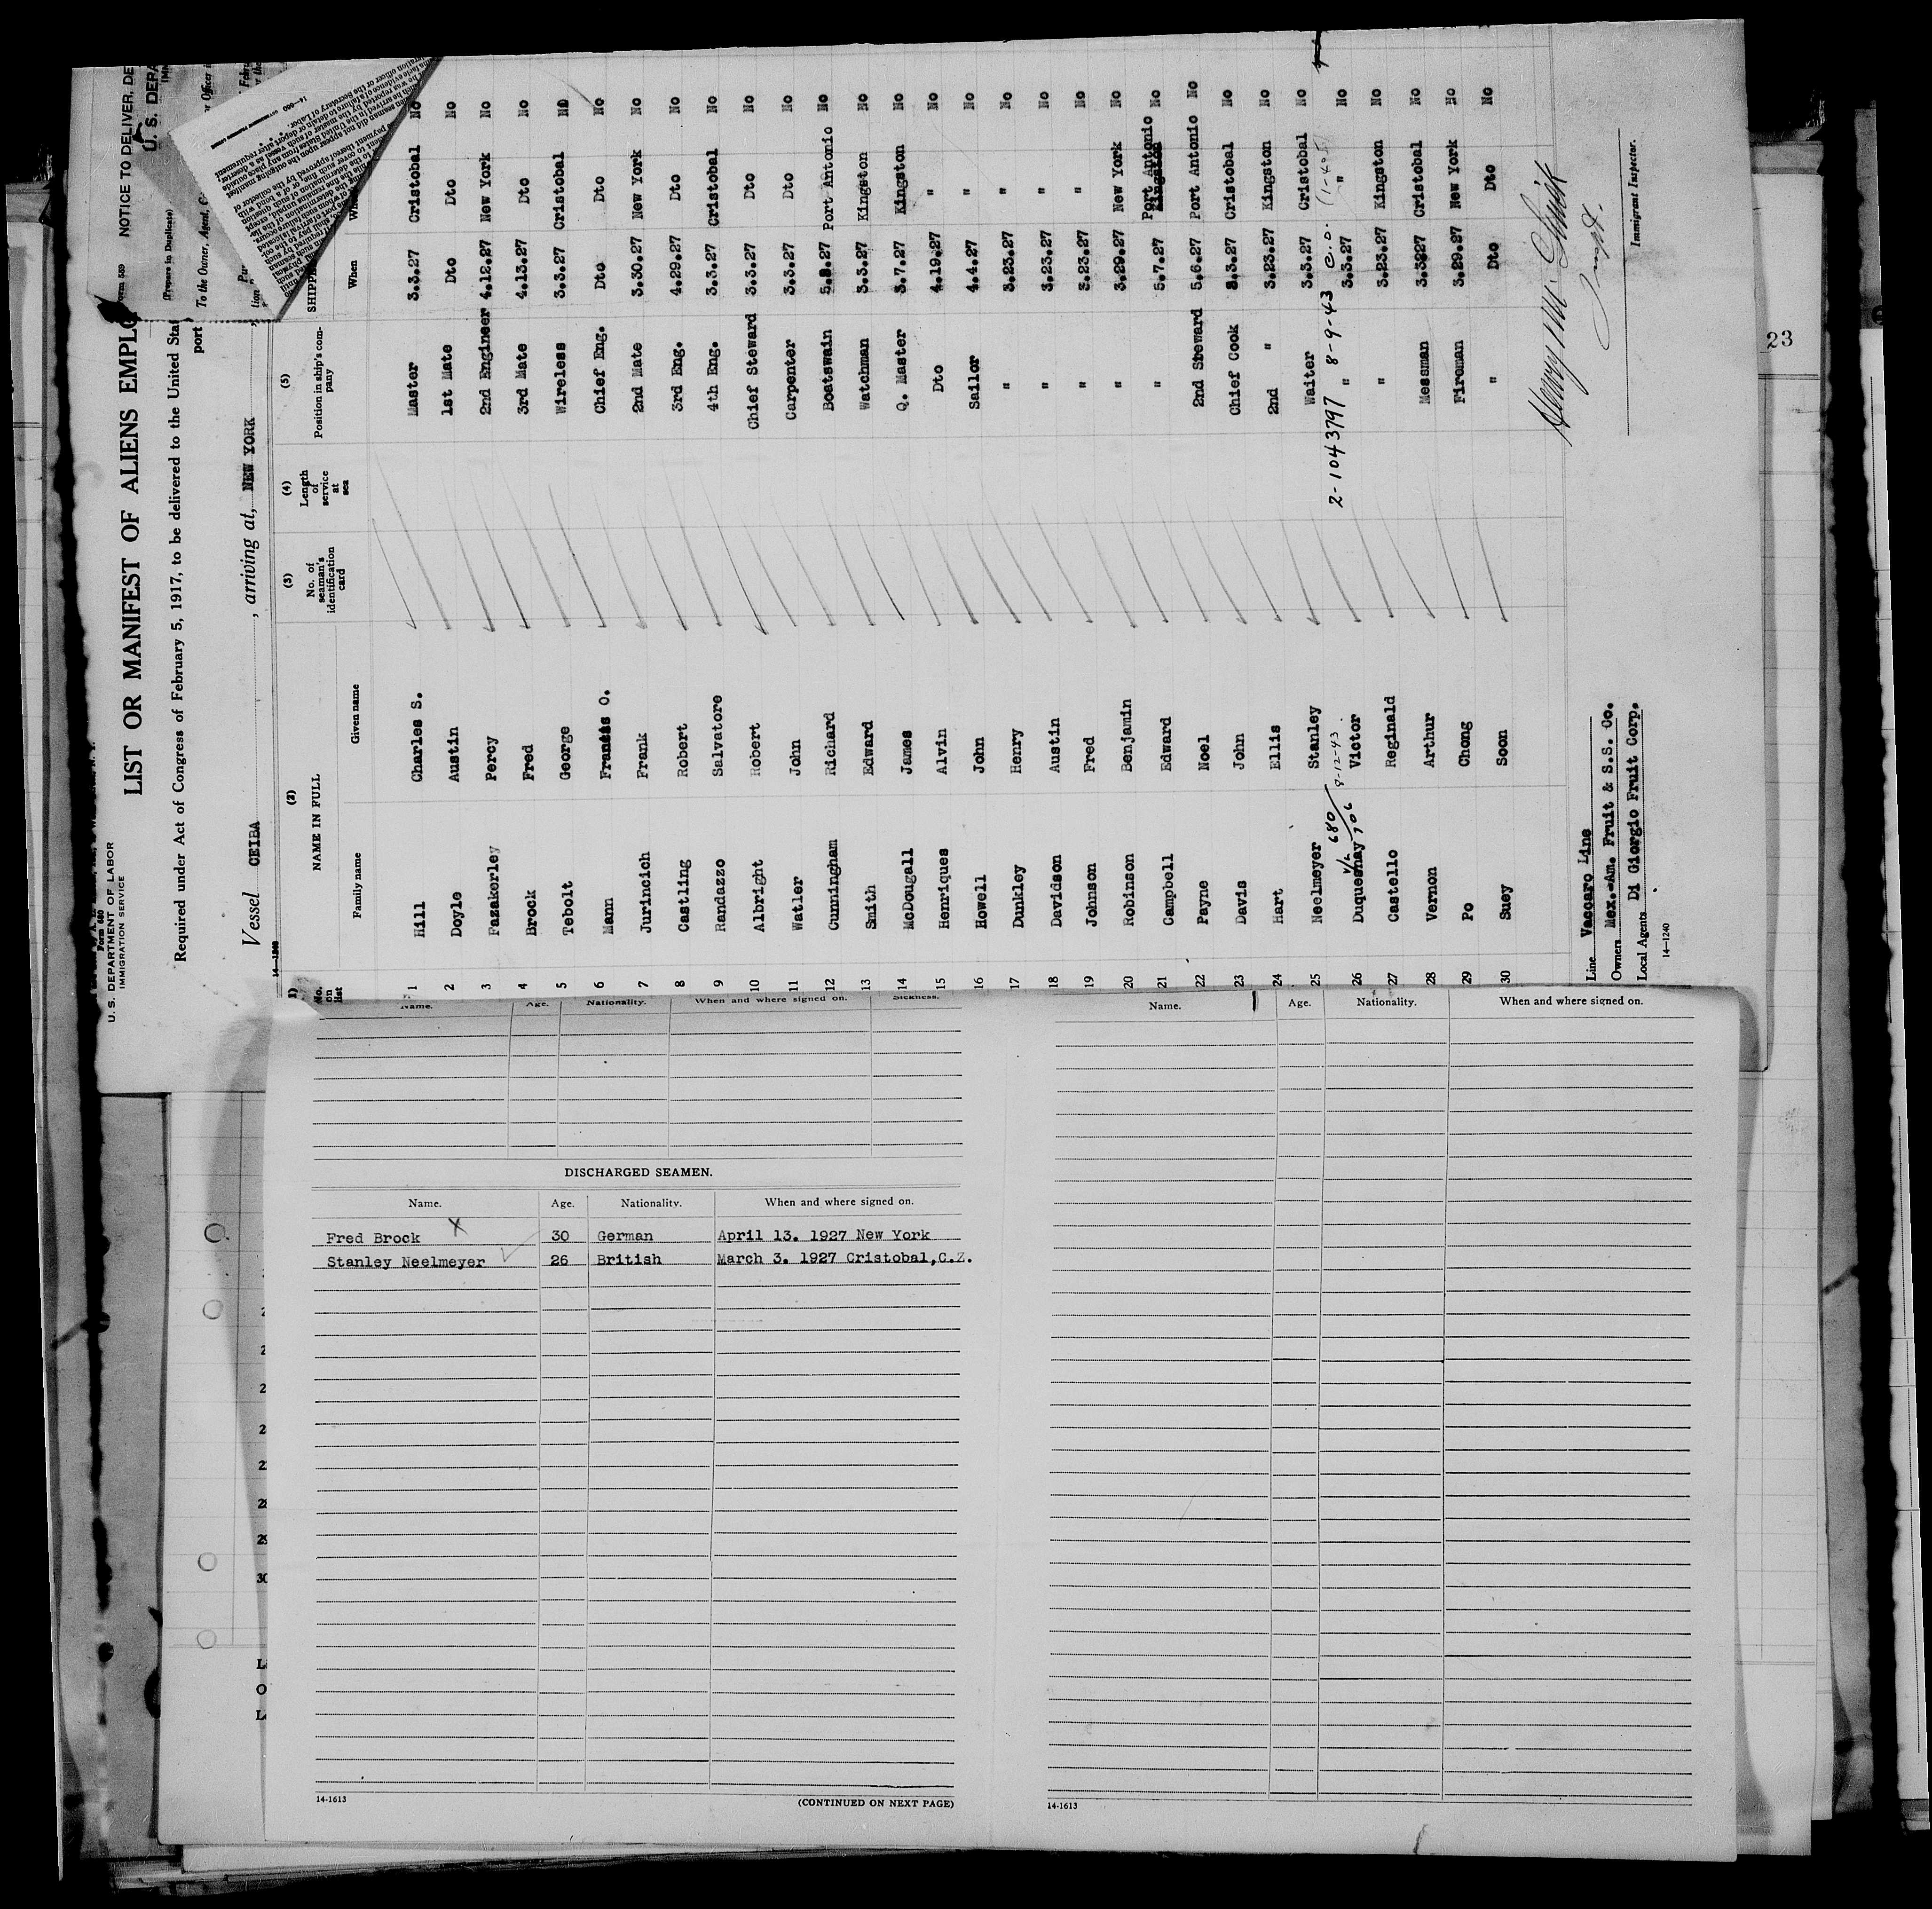 NOTICE TO DELIVER, DE
U. S. DEPA
(Prepare in Duplicate)
To the Owner, Agent,
U. S. DEPARTMENT OF LABOR
IMMIGRATION SERVICE
LIST OR MANIFEST OF ALIENS EMPLO
Required under Act of Congress of February 5, 1917, to be delivered to the United Stat
port
Vessel CEIBA, arriving at, NEW YORK
(2) (3) (4) (5)
NAME IN FULL No. of seaman's identification card Length of service at sea Position in ship's company SHIPPE
No. on list Family name Given name When
1 Hill Charles S. Master 3.3.27 Cristobal No
2 Doyle Austin 1st Mate Dto Dto No
3 Fazakerley Percy 2nd Engineer 4.12.27 New York No
4 Brock Fred 3rd Mate 4.13.27 Dto No
5 Tebolt George Wireless 3.3.27 Cristobal No
6 Mann Francis O. Chief Eng. Dto Dto No
7 Jurincich Frank 2nd Mate 3.30.27 New York No
8 Castling Robert 3rd Eng. 4.29.27 Dto No
9 Randazzo Salvatore 4th Eng. 3.3.27 Cristobal No
10 Albright Robert Chief Steward 3.3.27 Dto No
11 Watler John Carpenter 3.3.27 Dto No
12 Cunningham Richard Boatswain 5.8.27 Port Antonio No
13 Smith Edward Watchman 3.3.27 Kingston No
14 McDougall James Q. Master 3.7.27 Kingston No
15 Henriques Alvin Dto 4.19.27 " No
16 Howell John Sailor 4.4.27 " No
17 Dunkley Henry " 3.23.27 " No
18 Davidson Austin " 3.23.27 " No
19 Johnson Fred " 3.23.27 " No
20 Robinson Benjamin " 3.29.27 New York No
21 Campbell Edward " 5.7.27 Port Antonio No
22 Payne Noel 2nd Steward 5.6.27 Port Antonio No
23 Davis John Chief Cook 3.3.27 Cristobal No
24 Hart Ellis 2nd " 3.23.27 Kingston No
25 Neelmeyer Stanley Waiter 3.3.27 Cristobal No
V/L 680/706 8-12-43 2-1043797 8-9-43 C.O.
26 Duquesnay Victor " 3.3.27 " No
27 Castello Reginald " 3.23.27 Kingston No
28 Vernon Arthur Messman 3.327 Cristobal No
29 Po Chong Fireman 3.29.27 New York No
30 Suey Soon " Dto Dto No
Line Vaccaro Line
Owners Mex.-Am. Fruit & S.S. Co.
Local Agents Di Giorgio Fruit Corp.
14—1240
Immigrant Inspector.
23
Name. Age. Nationality. When and where signed on. Sickness.
DISCHARGED SEAMEN.
Name. Age. Nationality. When and where signed on.
Fred Brock X 30 German April 13. 1927 New York
Stanley Neelmeyer 26 British March 3. 1927 Cristobal,C.Z.
14-1613 (CONTINUED ON NEXT PAGE)
Name. Age. Nationality. When and where signed on.
14-1613